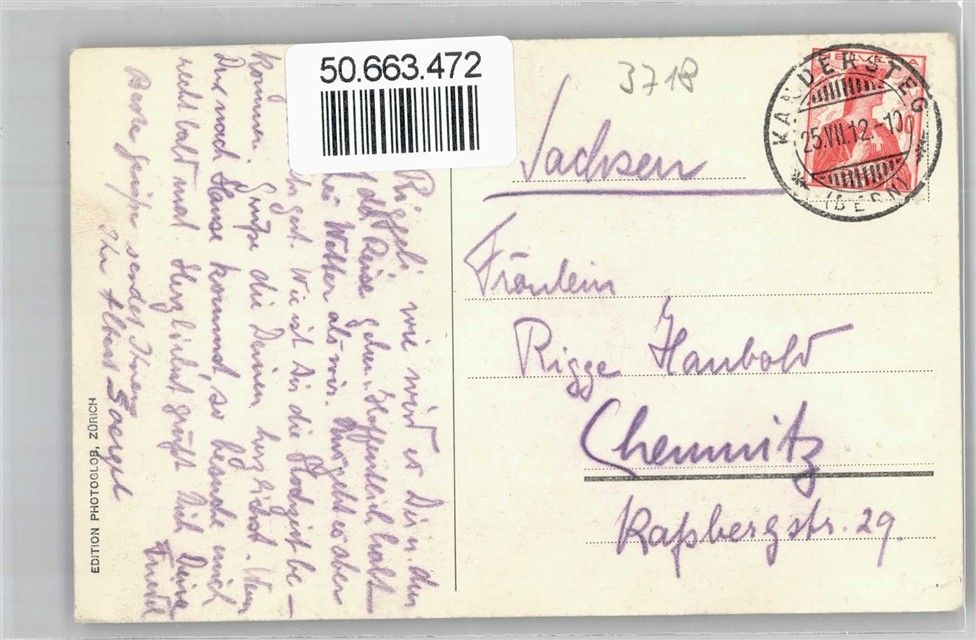 50.663.472
3718
HELVETIA
KANDERSTEG
25.VII.12.-10
(BERN)
Sachsen
Fräulein
Rigge Haubold
Chemnitz
Kaßbergstr. 29.
Riggel, wie wird es Dir u. den
auf der Reise gehen. Hoffentlich habt
Wetter als wir. Uns geht es aber
gut. Wie ist Dir die Hochzeit be-
kommen. Grüße die Deinen herzlichst. Wenn
Du nach Hause kommst, so besuche mich
recht bald mal. Herzlichst grüßt Dich Deine
Friedel
Beste Grüße sendet Ihnen
Ihr Albert Soergel
EDITION PHOTOGLOB, ZÜRICH